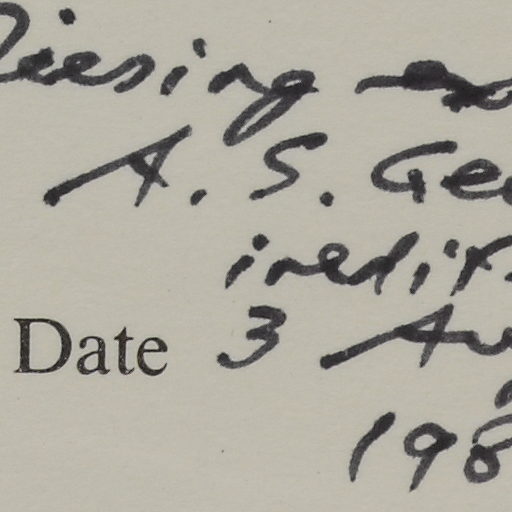 Diesing ex
A. S. Gee
inedit.
Date 3 Au
198